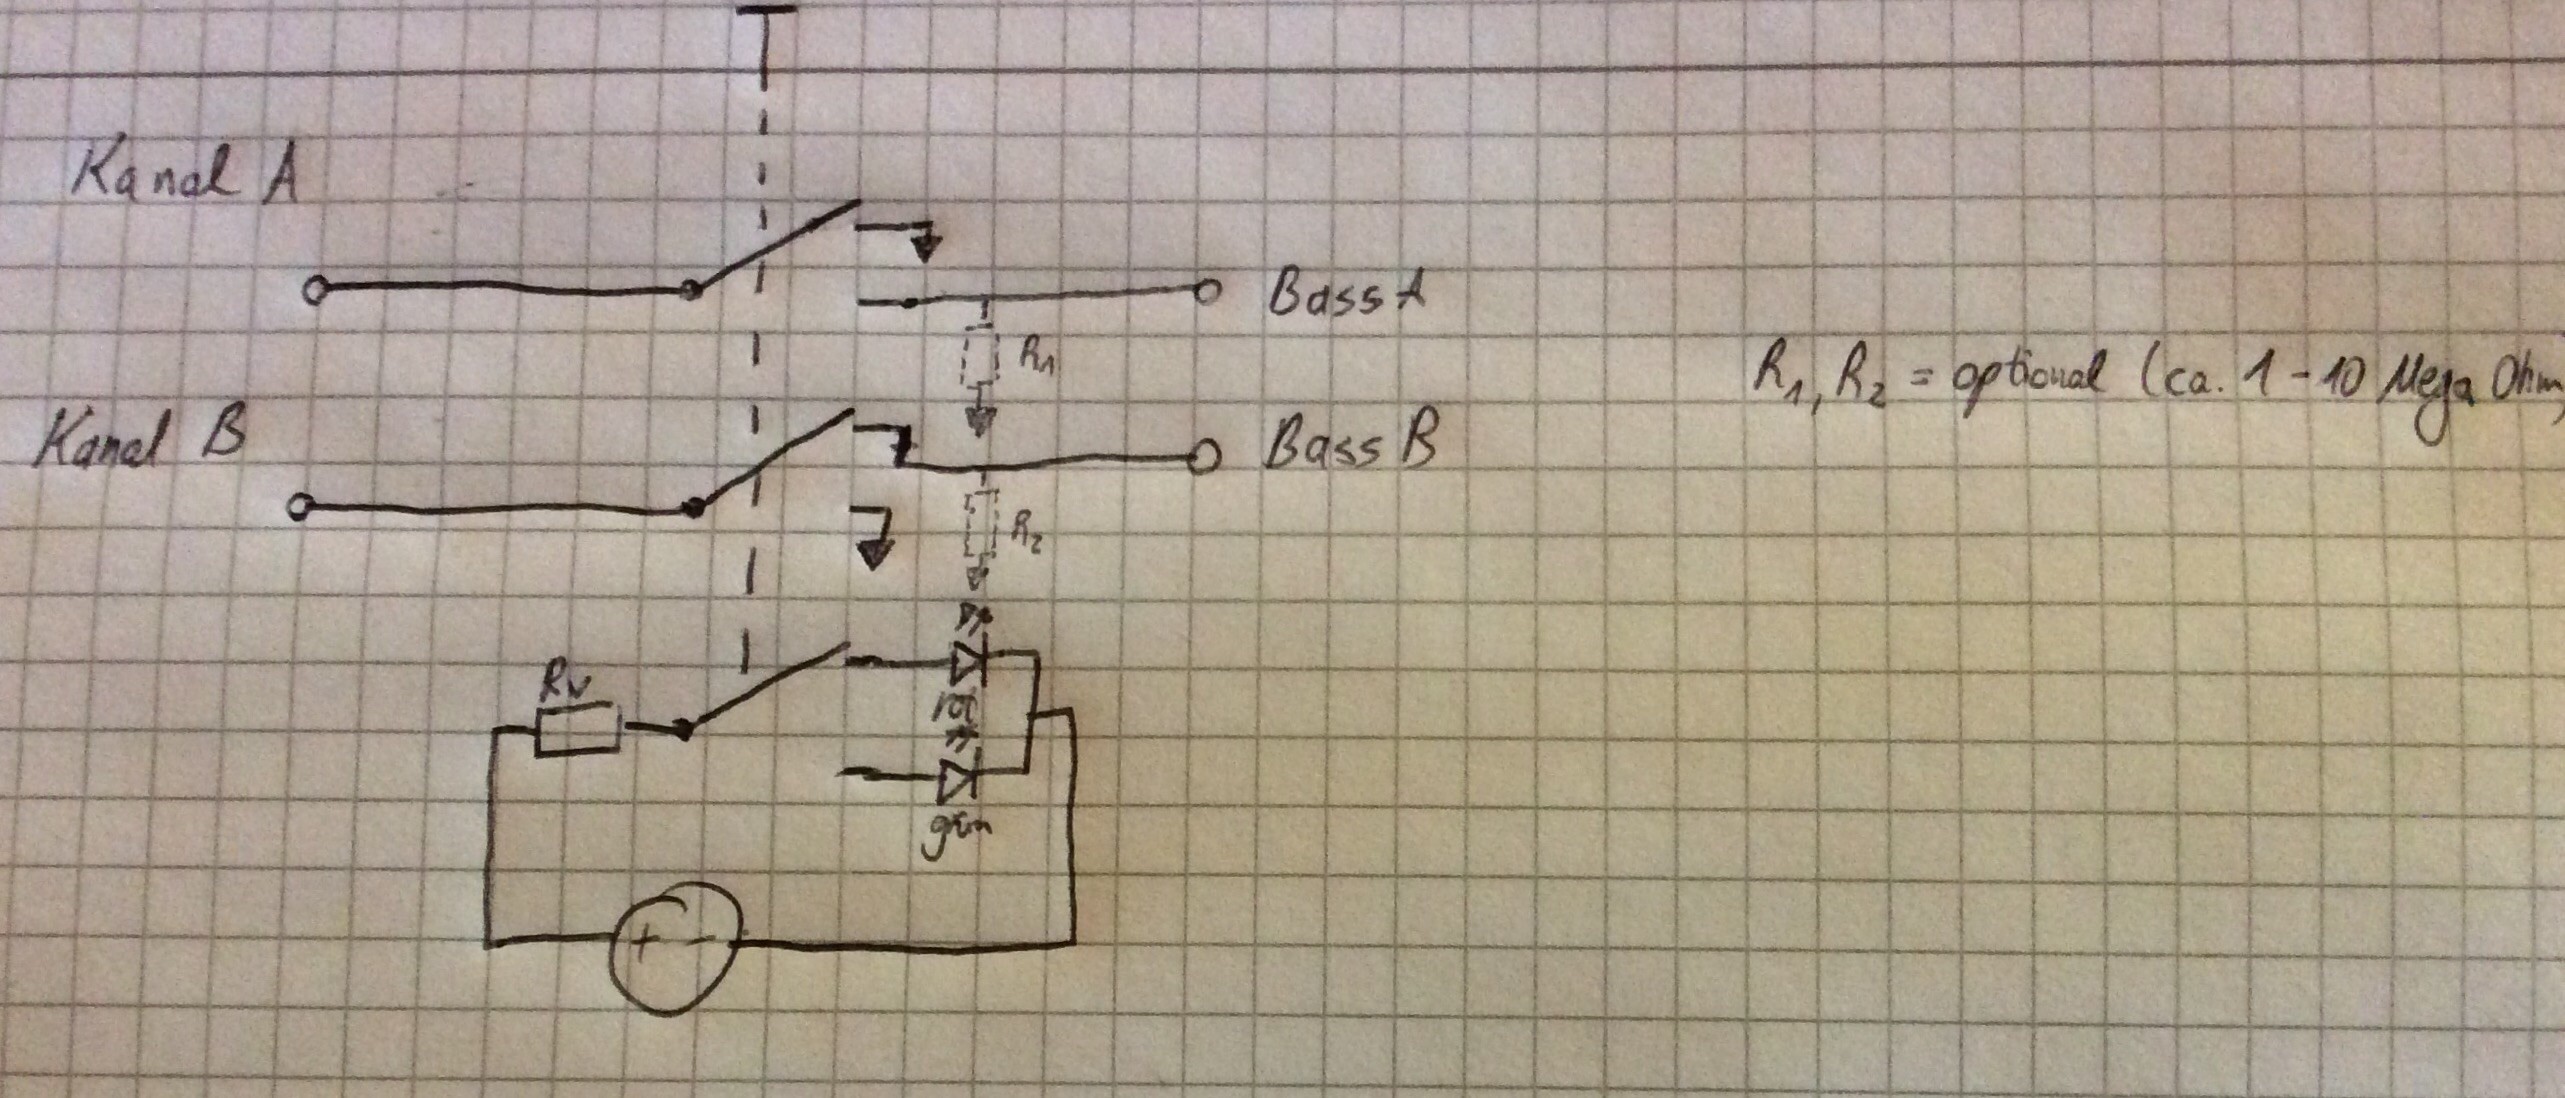 Kanal A
Bass A
R1
R1, R2 = optional (ca. 1 - 10 Mega Ohm)
Kanal B
Bass B
R2
Rv
rot
grün
+ -